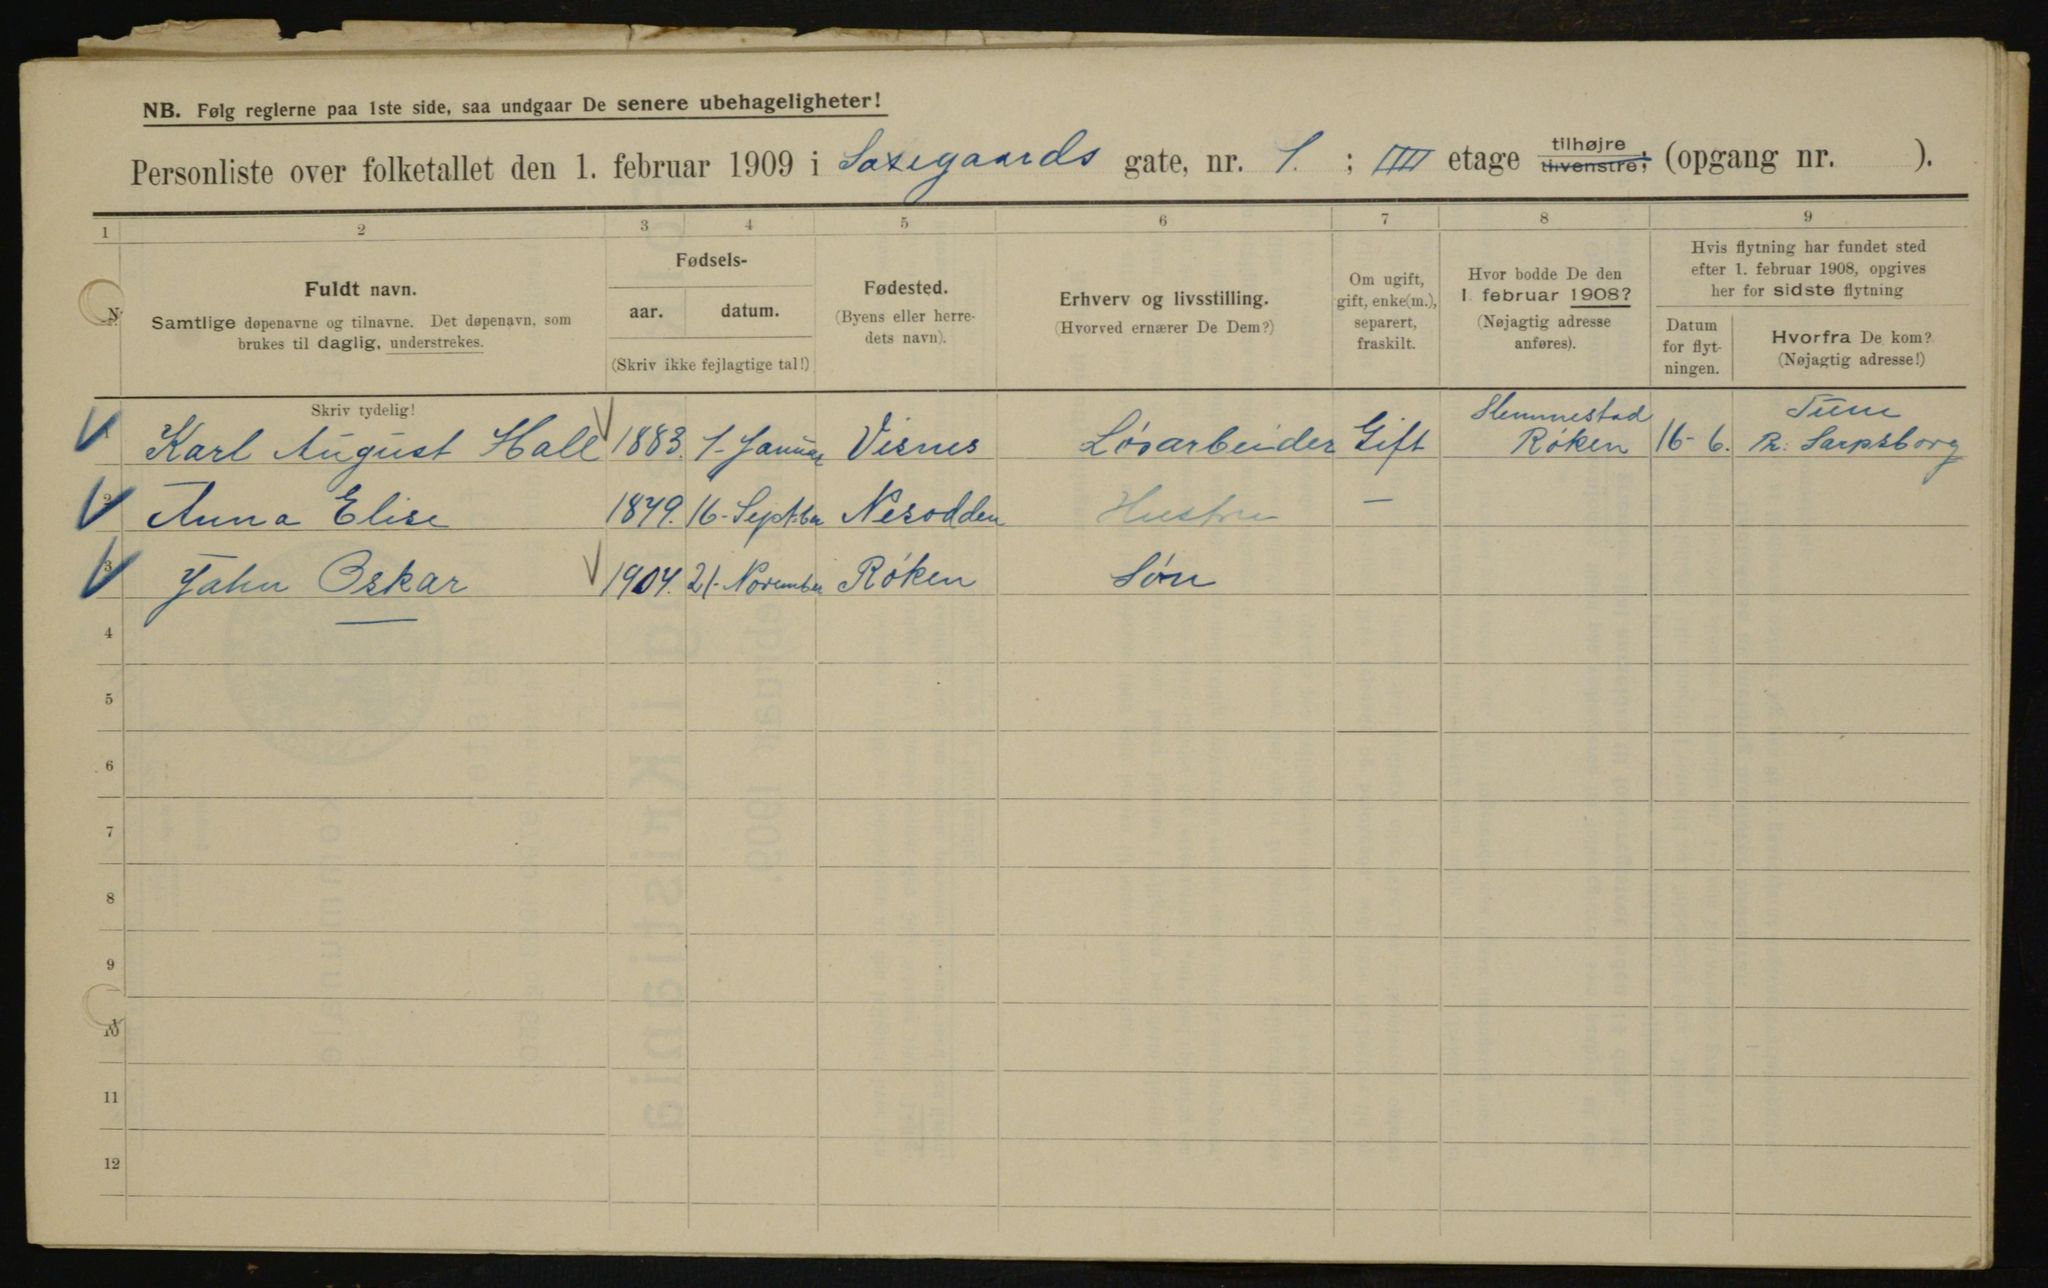 NB. Følg reglerne paa 1ste side, saa undgaar De senere ubehageligheter!
Personliste over folketallet den 1. februar 1909 i Saxegaards gate, nr. 1. ; IIII etage tilhøjre, tilvenstre, (opgang nr. ).
1 2 3 4 5 6 7 8 9
Fuldt navn.
Samtlige døpenavne og tilnavne. Det døpenavn, som
brukes til daglig, understrekes.
Skriv tydelig!
Fødsels-
aar. datum.
(Skriv ikke fejlagtige tal!)
Fødested.
(Byens eller herre-
dets navn).
Erhverv og livsstilling.
(Hvorved ernærer De Dem?)
Om ugift,
gift, enke(m.),
separert,
fraskilt.
Hvor bodde De den
1. februar 1908?
(Nøjagtig adresse
anføres).
Hvis flytning har fundet sted
efter 1. februar 1908, opgives
her for sidste flytning
Datum
for flyt-
ningen.
Hvorfra De kom?
(Nøjagtig adresse!)
Karl August Hall 1883. 1-Januar Visnes Løsarbeider Gift Slemmestad Røken 16-6. Tune Pr. Sarpsborg
2 Anna Elise 1879. 16-Septber Nesodden Hustru —
3 Jahn Oskar 1904. 21-November Røken Søn
4
5
6
7
8
9
10
11
12